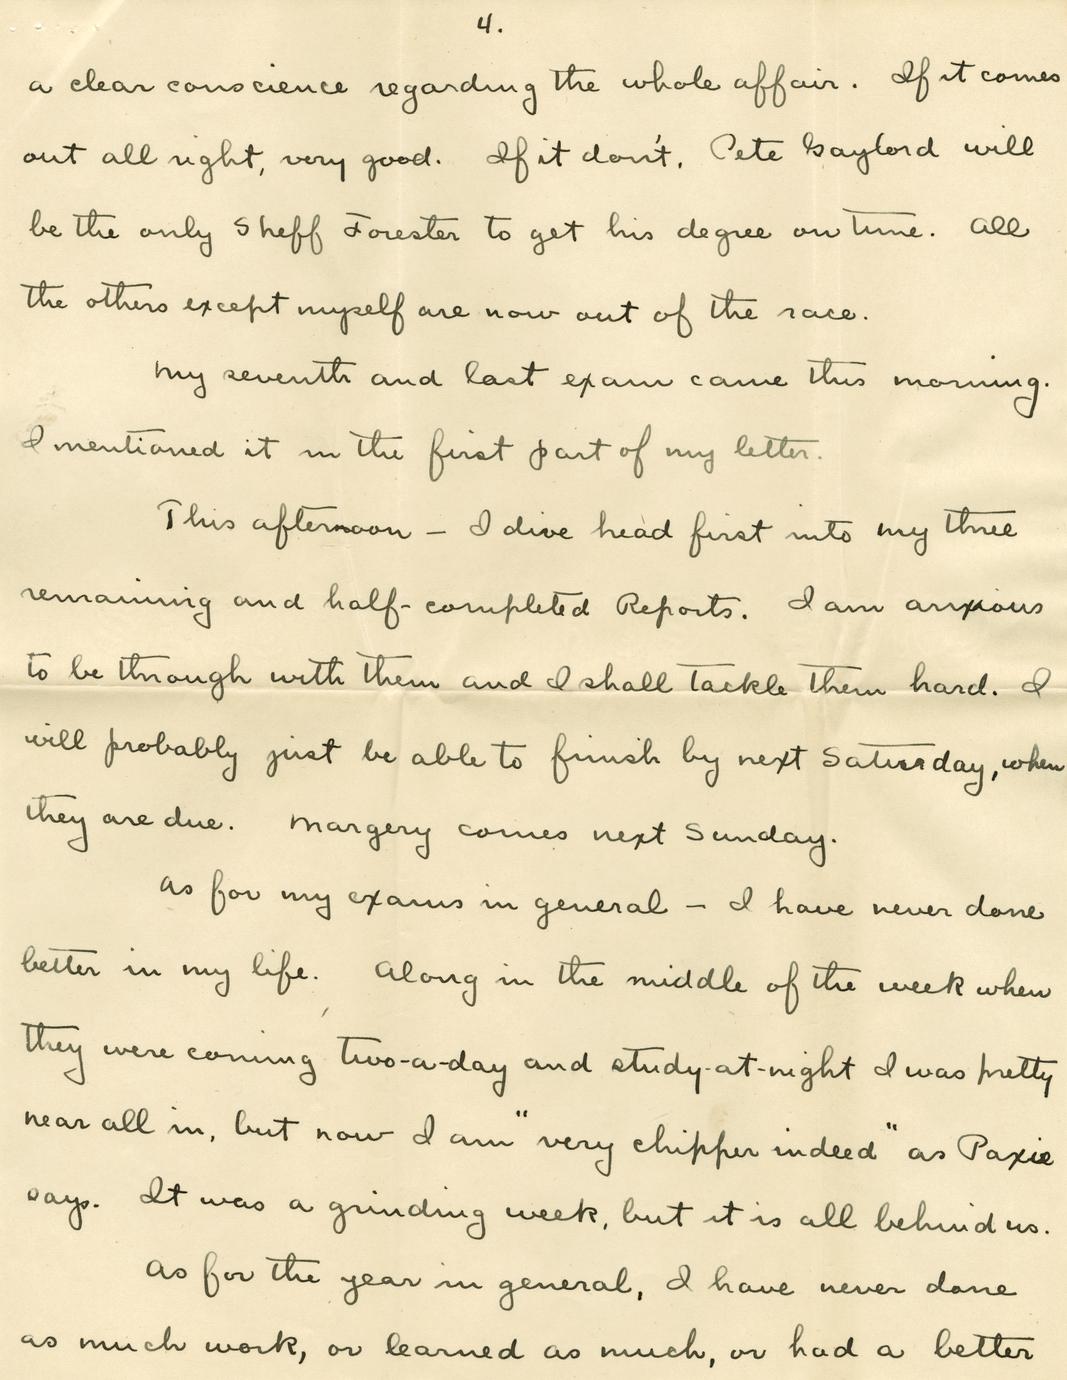 4.
a clear conscience regarding the whole affair. If it comes
out all right, very good. If it don't, Pete Gaylord will
be the only Sheff Forester to get his degree on time. All
the others except myself are now out of the race.
My seventh and last exam came this morning.
I mentioned it in the first part of my letter.
This afternoon – I dive head first into my three
remaining and half-completed Reports. I am anxious
to be through with them and I shall tackle them hard. I
will probably just be able to finish by next Saturday, when
they are due. Margery comes next Sunday.
As for my exams in general – I have never done
better in my life. Along in the middle of the week when
they were coming two-a-day and study-at-night I was pretty
near all in, but now I am "very chipper indeed" as Paxie
says. It was a grinding week, but it is all behind us.
As for the year in general, I have never done
as much work, or learned as much, or had a better